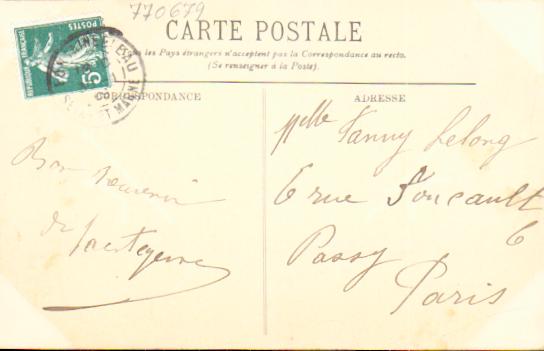 770679
CARTE POSTALE
les Pays étrangers n'acceptent pas la Correspondance au recto.
(Se renseigner à la Poste).
POSTES
5c
CORRESPONDANCE
ADRESSE
Bon Souvenir
de
Mlle Fanny Lelong
6 rue Foucault
6
Passy
Paris